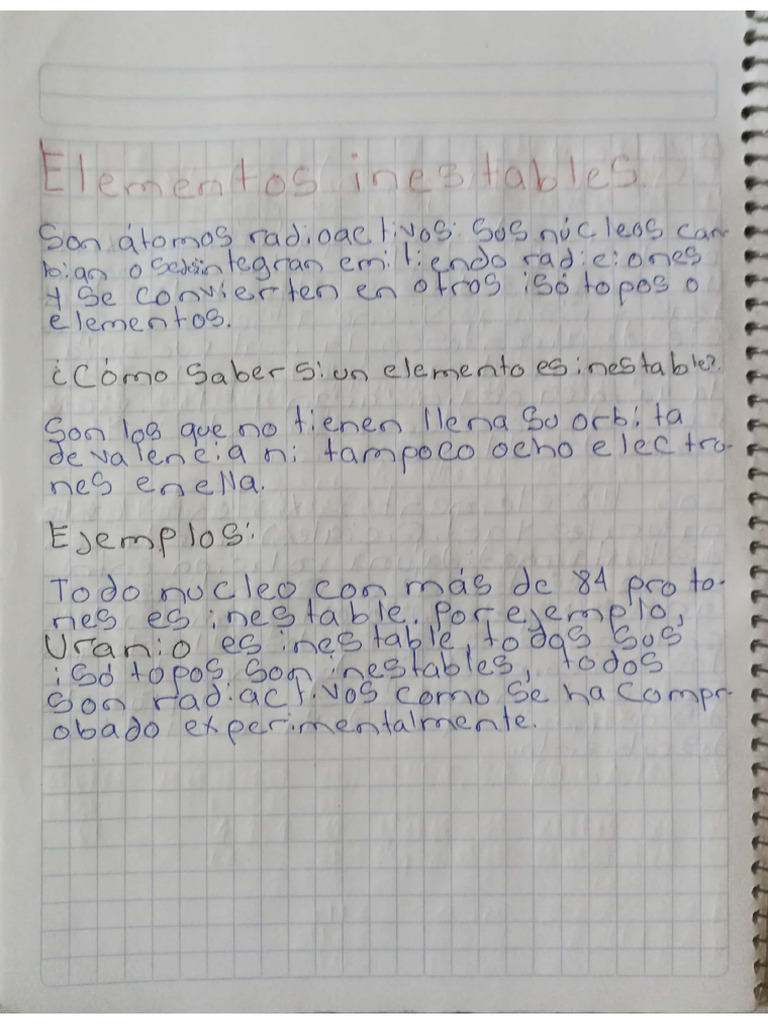 Elementos inestables
Son átomos radioactivos: Sus núcleos cam
bian o sedesintegran emitiendo radiciones
y se convierten en otros isótopos o
elementos.
¿Cómo saber si un elemento es inestable?
Son los que no tienen llena su orbita
de valencia ni tampoco ocho electro-
nes en ella.
Ejemplos:
Todo nucleo con más de 84 proto-
nes es inestable. Por ejemplo,
Uranio es inestable, todos sus
isótopos son inestables, todos
son radiactivos como se ha compr-
obado experimentalmente.